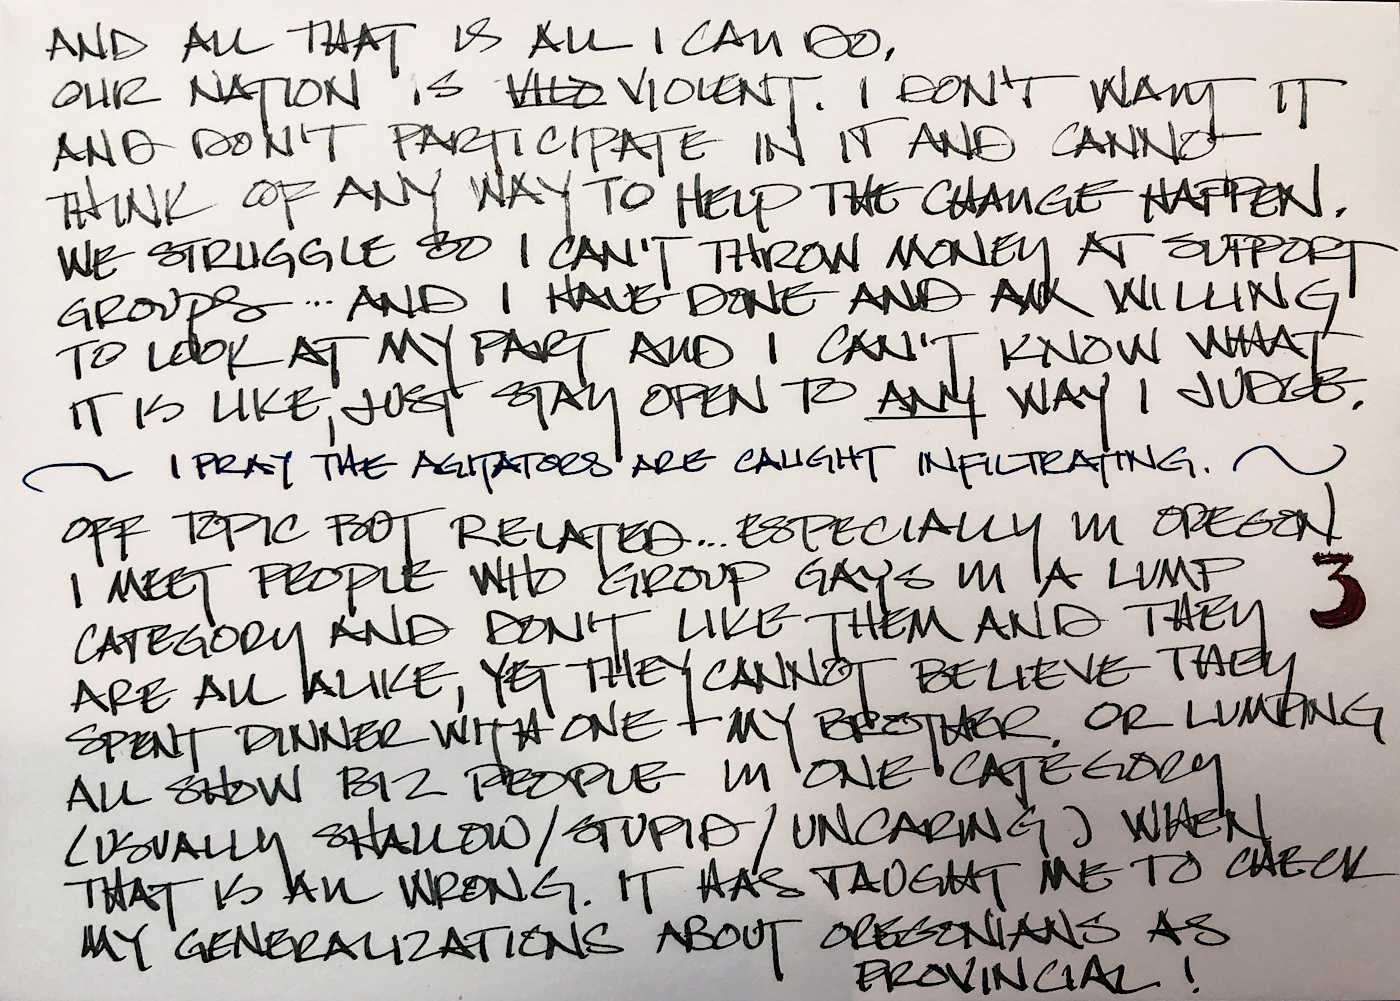 AND ALL THAT IS ALL I CAN DO,
OUR NATION IS VIOLENT. I DON'T WANT IT
AND DON'T PARTICIPATE IN IT AND CANNOT
THINK OF ANY WAY TO HELP THE CHANGE HAPPEN.
WE STRUGGLE SO I CAN'T THROW MONEY AT SUPPORT
GROUPS... AND I HAVE DONE AND AM WILLING
TO LOOK AT MY PART AND I CAN'T KNOW WHAT
IT IS LIKE, JUST STAY OPEN TO ANY WAY I JUDGE.
~ I PRAY THE AGITATORS ARE CAUGHT INFILTRATING. ~
OFF TOPIC BUT RELATED... ESPECIALLY IN OREGON
I MEET PEOPLE WHO GROUP GAYS IN A LUMP
3
CATEGORY AND DON'T LIKE THEM AND THEY
ARE ALL ALIKE, YET THEY CANNOT BELIEVE THEY
SPENT DINNER WITH ONE - MY BROTHER. OR LUMPING
ALL SHOW BIZ PEOPLE IN ONE CATEGORY
(USUALLY SHALLOW/STUPID/UNCARING) WHEN
THAT IS ALL WRONG. IT HAS TAUGHT ME TO CHECK
MY GENERALIZATIONS ABOUT OREGONIANS AS
PROVINCIAL!